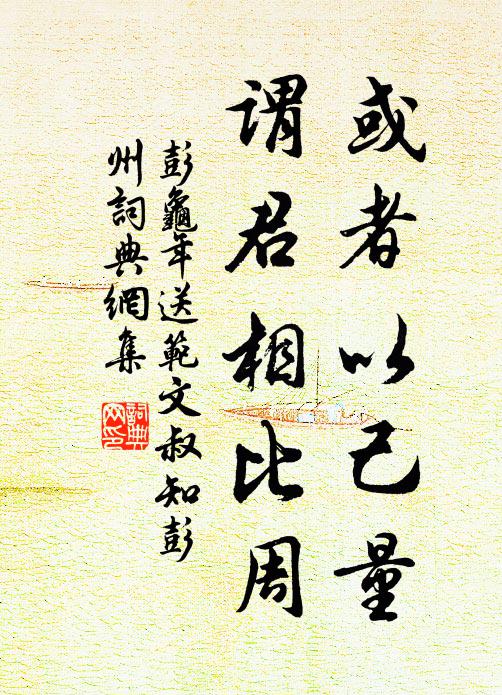 或者以己量
謂君相比周
彭龜年送範文叔知彭
州詞典網集
詞典
网印